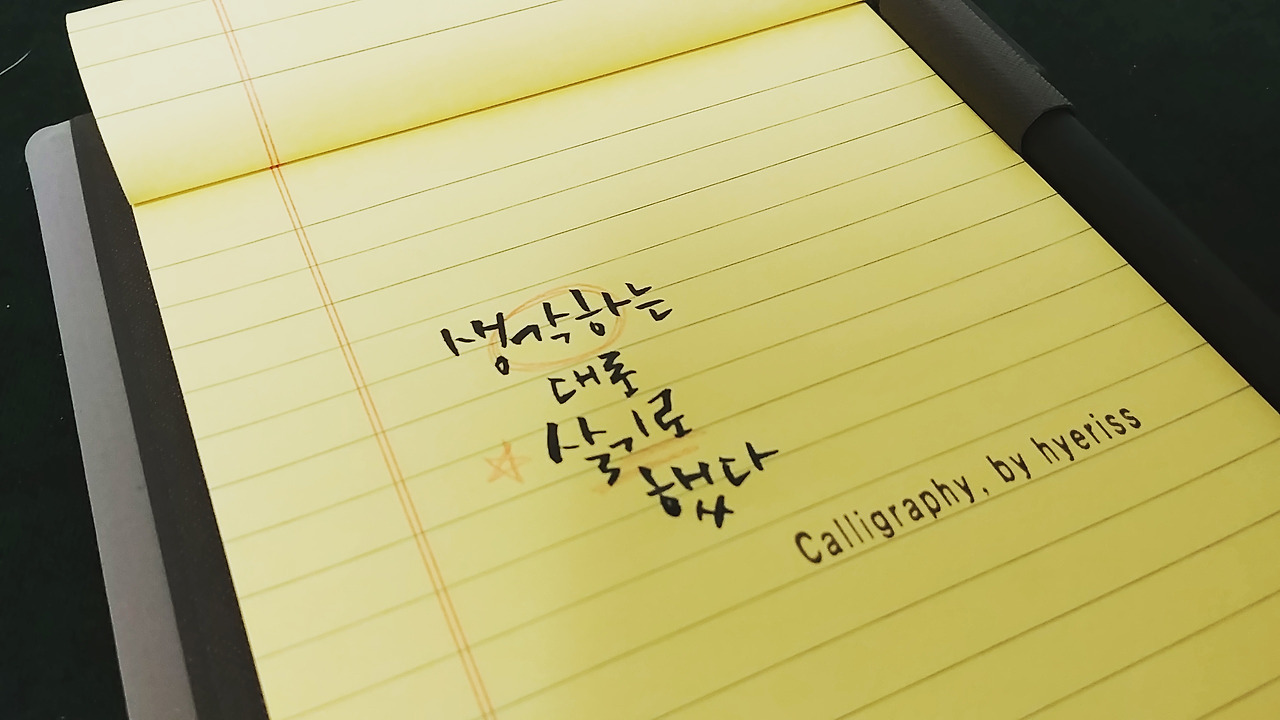 생각하는
대로
살기로
했다
Calligraphy, by hyeriss